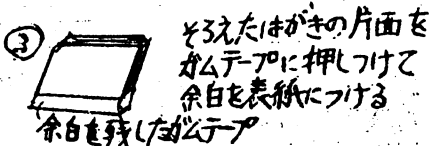 ③
そろえたはがきの片面を
ガムテープに押しつけて
余白を表紙につける
余白を残したガムテープ